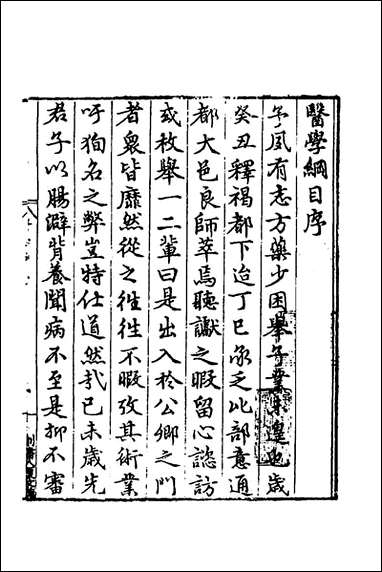 醫學綱目序
予夙有志方藥少困舉子業未遑也歲
癸丑釋褐都下迨丁巳承乏比部意通
都大邑良師萃焉聽讞之暇留心諮訪
或枚舉一二輩曰是出入於公卿之門
者衆皆靡然從之徃徃不暇攷其術業
吁狥名之弊豈特仕道然㦲己未歲先
君子以腸澼背養聞病不至是抑不審